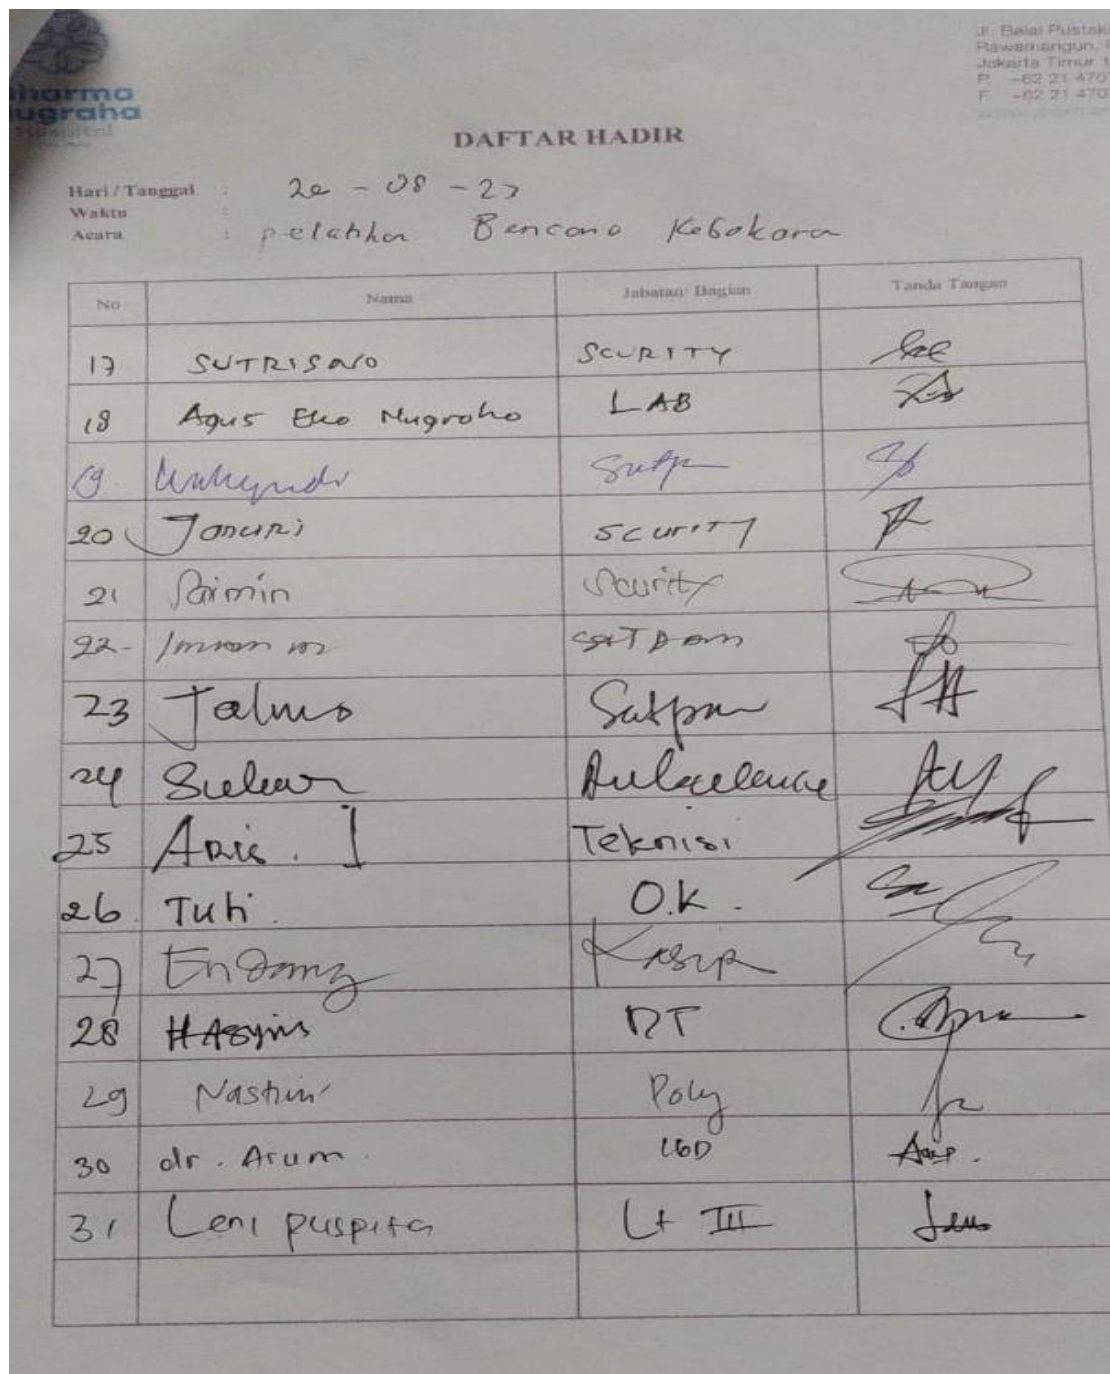 Dharma
Nugraha
Hospital
Jl. Balai Pustaka
Rawamangun,
Jakarta Timur 1
P. -62 21 470
F. -62 21 470
DAFTAR HADIR
Hari / Tanggal :
Waktu :
Acara : pelatihan Bencana Kebakaran
No Nama Jabatan/ Bagian Tanda Tangan
17 SUTRISNO SCURITY
18 Agus Eko Nugroho LAB
19. Wahyudi Satpam
20 Januri SCURITY
21 Saimin Scurity
22- Imran SATPAM
23 Jalmo Satpam
24
25 Aris. I Teknisi
26. Tuti. O.K.
27 Endang Kasir
28 HASyim RT
29 Nastiti Poly
30 dr. Arum. UGD
31 Leni puspita Lt III